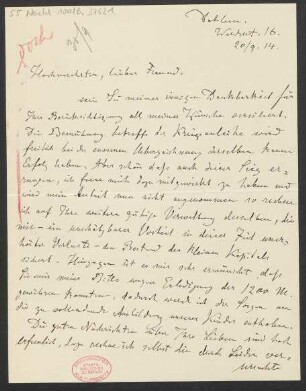 55 Nachl 100/B, 37621
Dahlem
Windwst. 16.
20/9. 14.
Hochverehrter, lieber Freund.
sein Sie meiner innigen Dankbarkeit für
Ihre Berücksichtigung all meiner Wünsche versichert.
Die Bemühung betreffs der Kriegsanleihe wird
freilich bei der enormen Überzeichnung derselben kaum
Erfolg haben. Aber schön daß auch dieser Sieg er-
rungen, ich freue mich dazu mitgewirkt zu haben und
wird mein Antheil nun nicht angenommen so rechne
ich auf Ihre weitere gütige Verwaltung desselben, die
mir - ein unschätzbarer Vorteil in dieser Zeit uner-
hörter Verluste - den Bestand des kleinen Kapitals
sichert. Hingegen ist es mir sehr erwünscht daß
Sie mir meine Bitte wegen Erledigung der 1200 M.
gewähren konnten, dadurch werde ich der Sorgen um
die zu vollendende Ausbildung unserer Kinder enthoben.
Die guten Nachrichten über Ihre Lieben sind hoch-
erfreulich, dazu rechne ich selbst die durch Leiden ver-